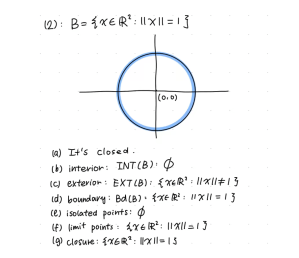 (2): B = {x∈ℝ²: ||x|| = 1}
(0,0)
(a) It's closed.
(b) interior: INT(B): ∅
(c) exterior: EXT(B): {x∈ℝ²: ||x|| ≠ 1}
(d) boundary: Bd(B): {x∈ℝ²: ||x|| = 1}
(e) isolated points: ∅
(f) limit points: {x∈ℝ²: ||x|| = 1}
(g) closure: {x∈ℝ²: ||x|| = 1}